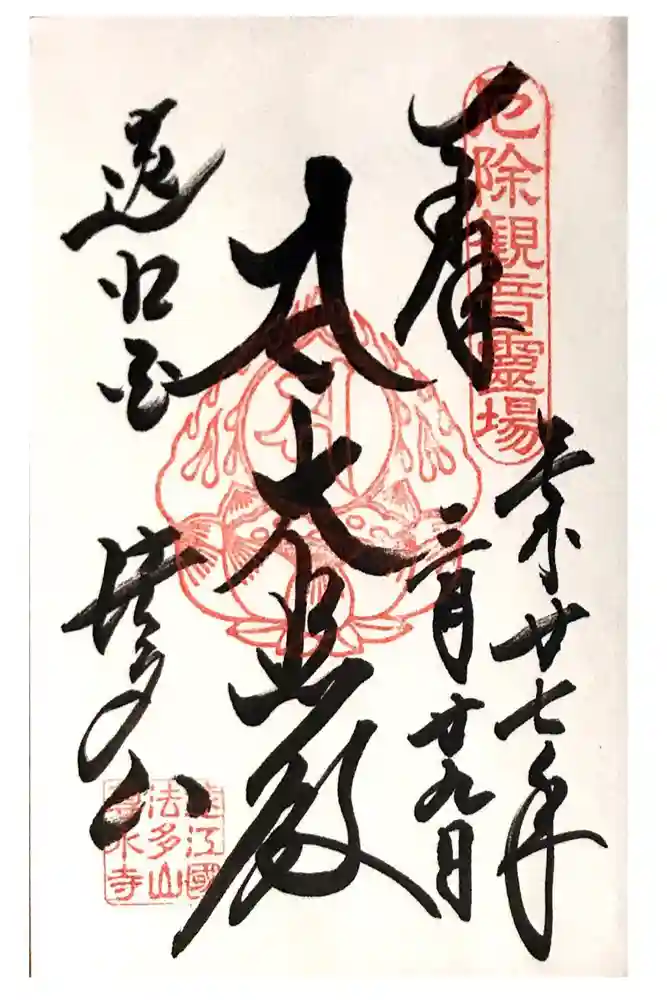 厄除観音靈場
奉拝
平成廿七年
三月廿九日
大悲殿
遠州
法多山
遠江國
法多山
尊永寺